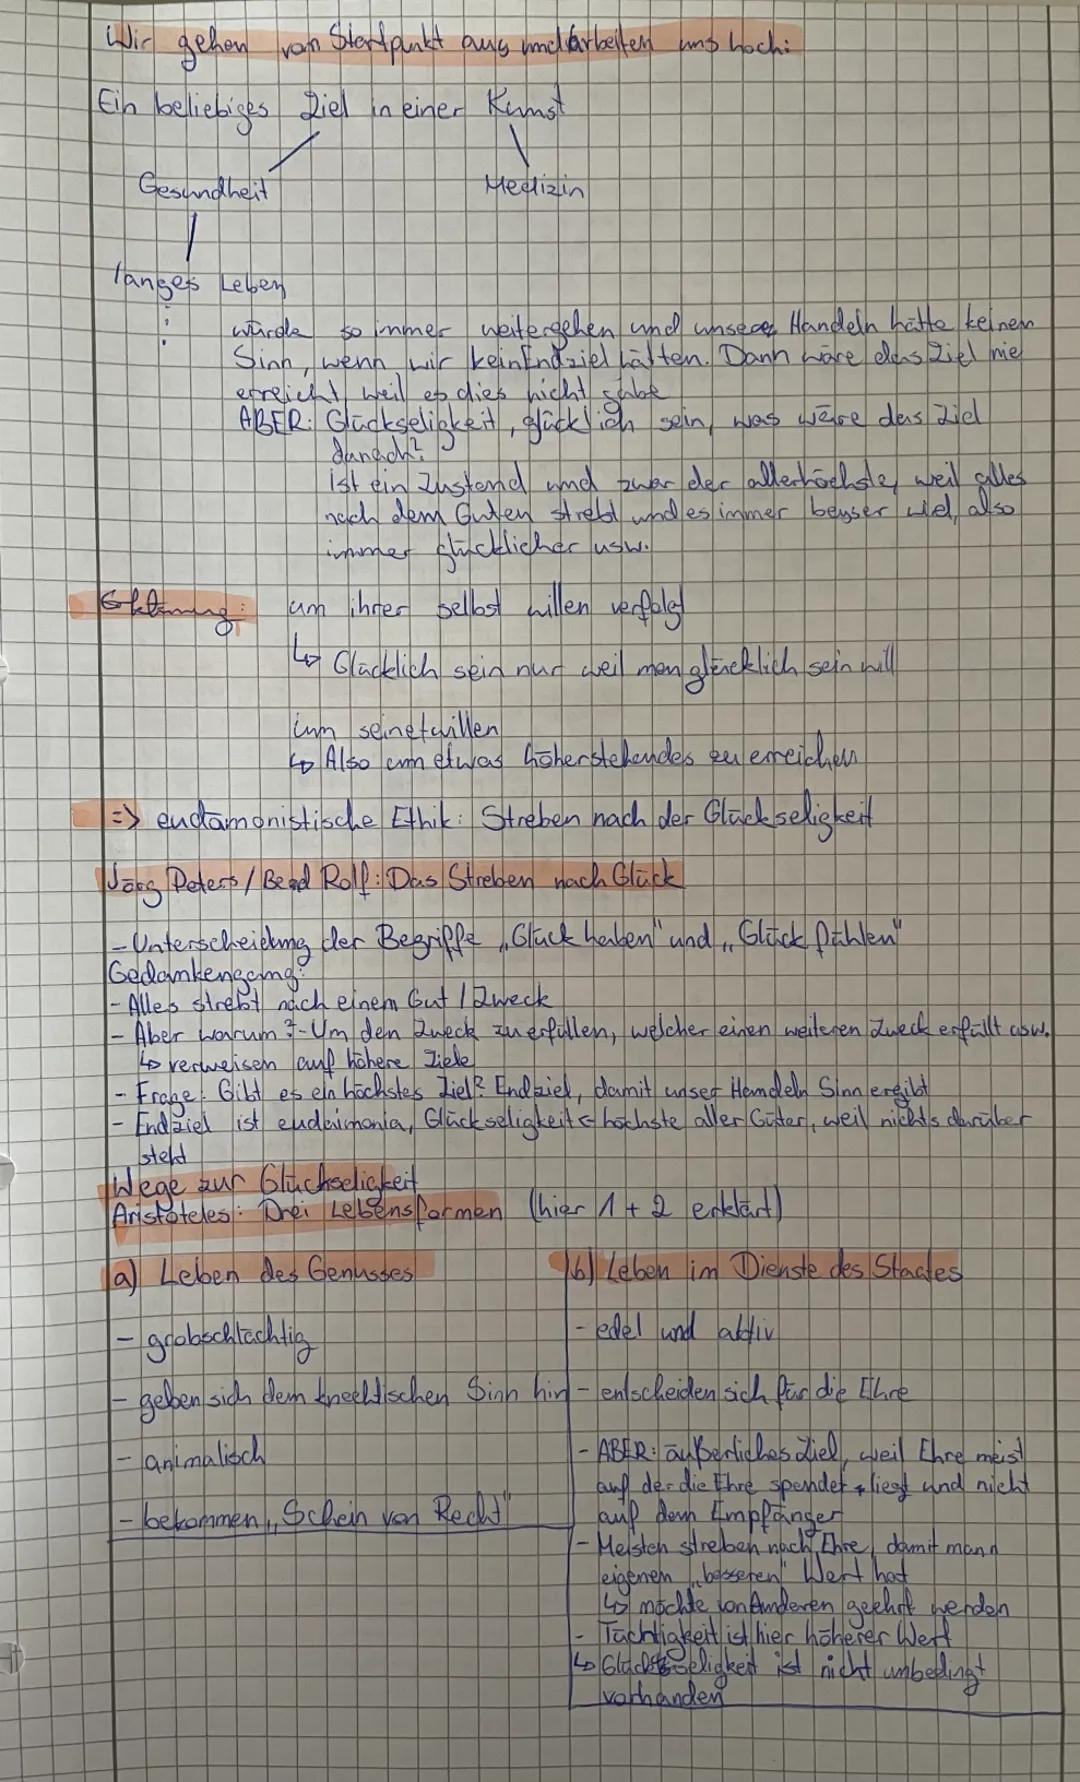 Wir gehen vom Startpunkt aus und arbeiten uns hoch:
Ein beliebiges Ziel in einer Kunst
Gesundheit Medizin
langes Leben
würde so immer weitergehen und unseres Handeln hätte keinen
Sinn, wenn wir kein Endziel hätten. Dann wäre das Ziel nie
erreicht, weil es dies nicht gäbe
ABER: Glückseligkeit, glücklich sein, was wäre das Ziel
danach?
ist ein Zustand und zwar der allerhöchste, weil alles
nach dem Guten strebt und es immer besser wird, also
immer glücklicher usw.
Erklärung: um ihrer selbst willen verfolgt
↳ Glücklich sein nur weil man glücklich sein will
um seinetwillen
↳ Also um etwas höherstehendes zu erreichen
=> eudämonistische Ethik: Streben nach der Glückseligkeit
Jörg Peters / Bernd Rolf: Das Streben nach Glück
- Unterscheidung der Begriffe „Glück haben" und „Glück fühlen"
Gedankengang:
- Alles strebt nach einem Gut / Zweck
- Aber warum? - Um den Zweck zu erfüllen, welcher einen weiteren Zweck erfüllt usw.
↳ verweisen auf höhere Ziele
- Frage: Gibt es ein höchstes Ziel? Endziel, damit unser Handeln Sinn ergibt
- Endziel ist eudaimonia, Glückseligkeit höchste aller Güter, weil nichts darüber
steht
Wege zur Glückseligkeit
Aristoteles: Drei Lebensformen (hier 1 + 2 erklärt)
a) Leben des Genusses
- grobschlächtig
- geben sich dem knechtischen Sinn hin
- animalisch
- bekommen „Schein von Recht"
b) Leben im Dienste des Staates
- edel und aktiv
- entscheiden sich für die Ehre
- ABER: äußerliches Ziel, weil Ehre meist
auf der die Ehre spendet liegt und nicht
auf dem Empfänger
- Meisten streben nach Ehre, damit mann
eigenem „besseren" Wert hat
↳ möchte von Anderen geehrt werden
- Tüchtigkeit ist hier höherer Wert
↳ Glückseligkeit ist nicht unbedingt
vorhanden